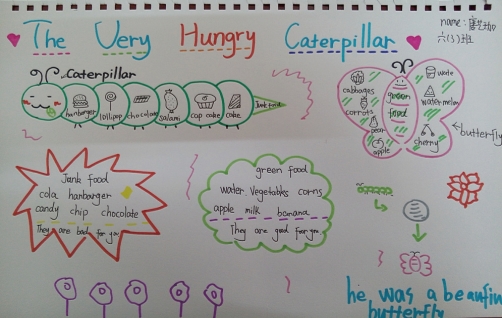 The Very Hungry Caterpillar
name:
六(3)班
Caterpillar
hamburger
lollipop
chocolate
salami
cup cake
cake
Junk food
cabbages
carrots
pear
apple
green
food
water
watermelon
cherry
butterfly
Junk food
cola hanbarger
candy chip chocolate
They are bad for you
green food
water vegetables corns
apple milk banana
They are good for you
he was a beaufin
butterfly